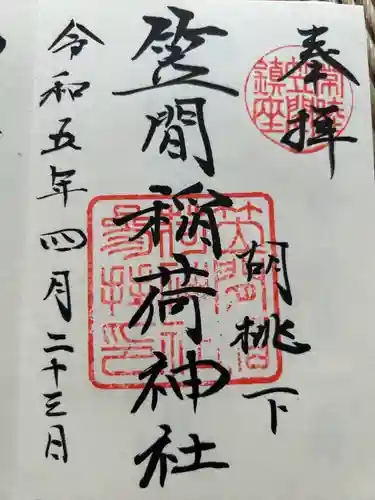 奉拝
常陸笠間鎮座
胡桃下
笠間稲荷神社
令和五年四月二十三日